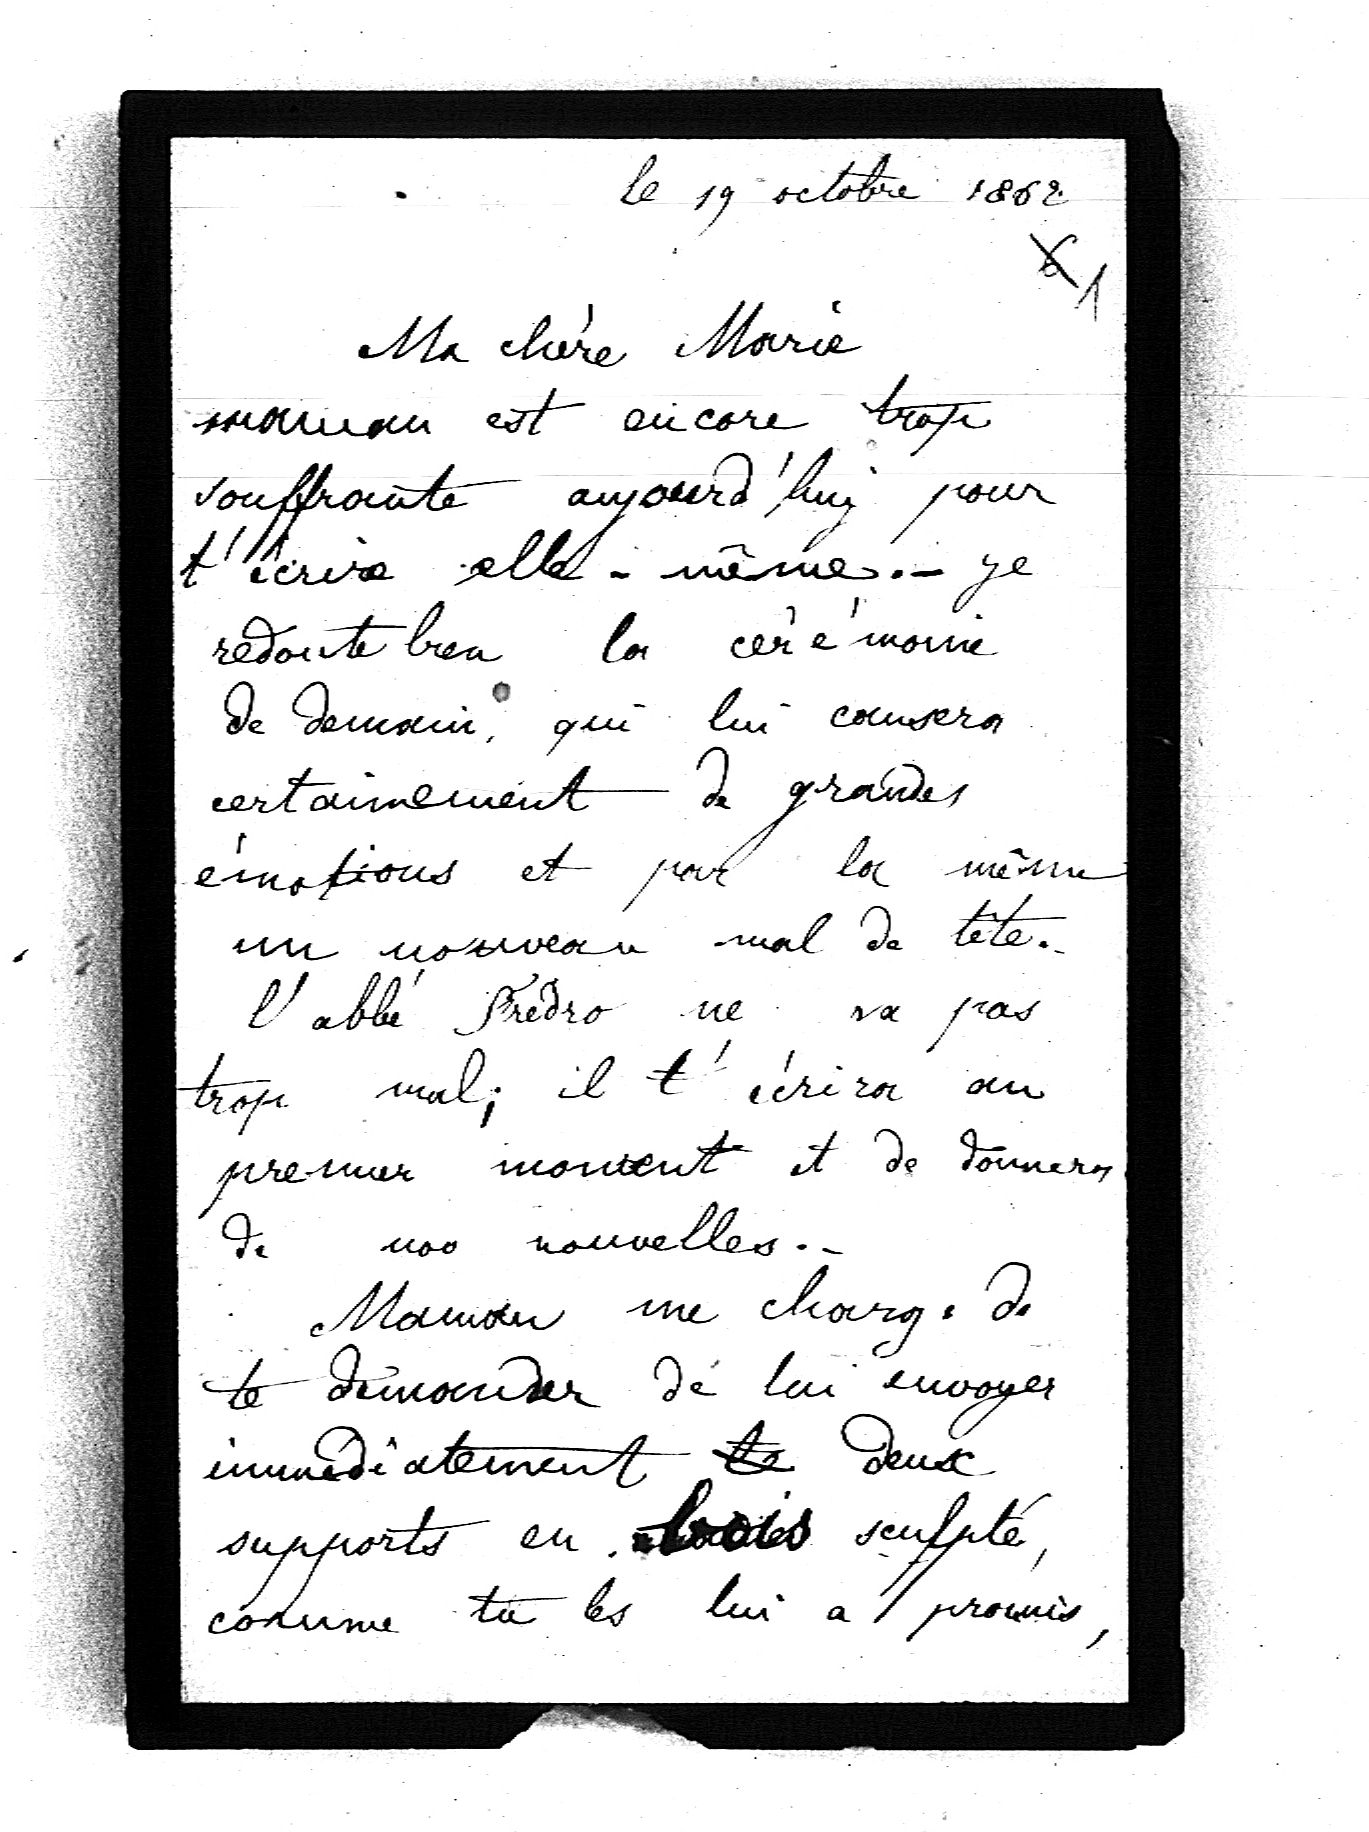 le 19 octobre 1862
6 1
Ma chére Marie
maman est encore trop
souffrante aujourd'hui pour
t'écrire elle-même.- je
redoute bien la cérémonie
de demain, qui lui causera
certainement de grandes
émotions et par la même
un nouveau mal de tête.-
l'abbé Fredro ne va pas
trop mal; il t'écrira au
premier moment et de donnera
de nos nouvelles.-
Maman me charge de
te demander de lui envoyer
immédiatement te deux
supports en bois sculpté,
comme tu les lui a promis,